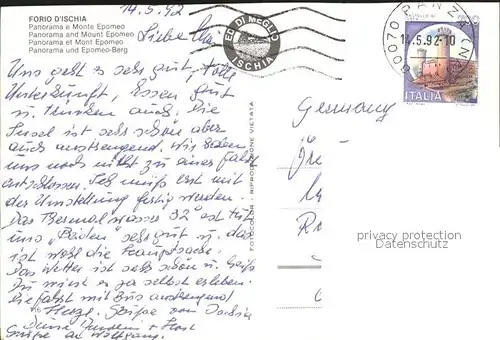 14.5.92
FORIO D'ISCHIA
Panorama e Monte Epomeo
Panorama and Mount Epomeo
Panorama et Mont Epomeo
Panorama und Epomeo-Berg
Liebe
Uns geht es sehr gut, tolle
Unterkunft, Essen gut
u. Trinken auch. Die
Insel ist sehr schön aber
auch anstrengend. Wir haben
uns noch nicht zu einer Fahrt
entschlossen. Ich muß erst mit
der Umstellung fertig werden.
Das Thermalwasser 32° ist tut
uns "Beiden" sehr gut u. das
ist wohl die Hauptsache.
Das Wetter ist sehr schön u. heiß
Du wirst es ja selbst erleben.
Die Fahrt mit Bus anstrengend
Herzl. Grüße von Ischia
Deine + Horst
Grüße an Wolfgang
FOTOCOLOR - RIPRODUZIONE VIETATA
ED DI MEGLIO
ISCHIA
80070 PANZA
14.5.92-10
ITALIA
Germany
privacy protection
Datenschutz